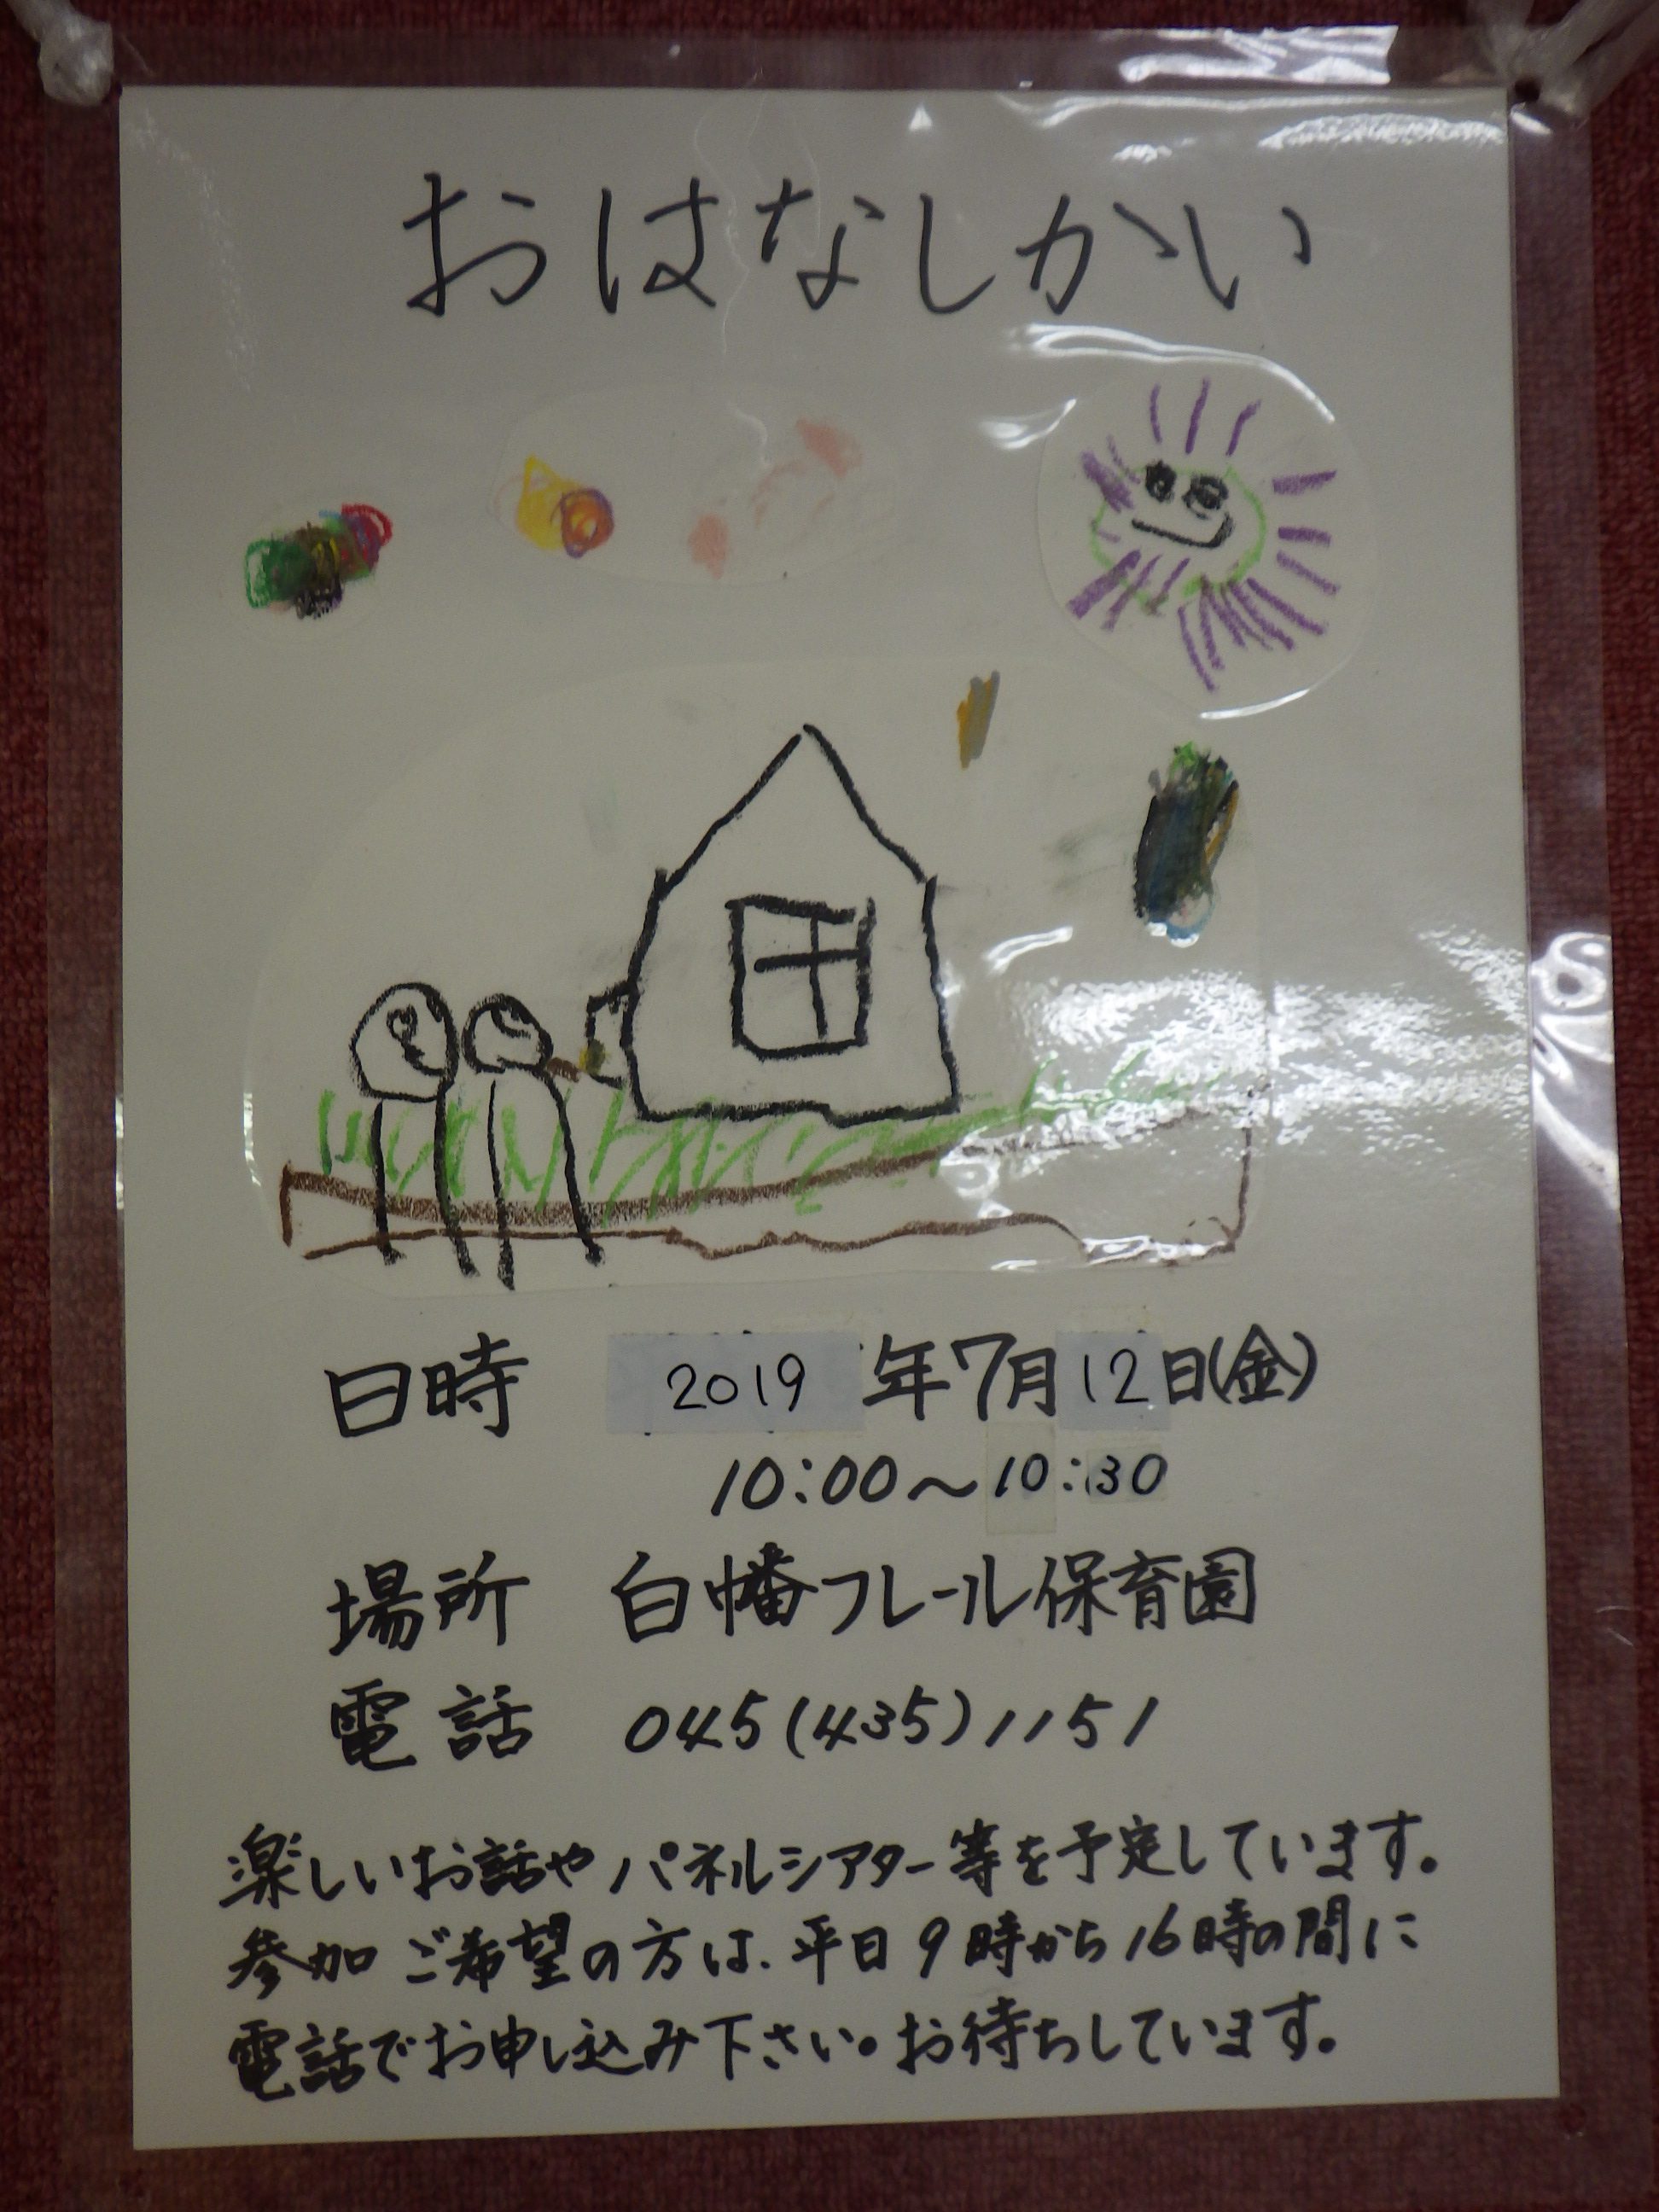 おはなしかい
日時 2019年7月12日(金)
10:00～10:30
場所 白幡フレール保育園
電話 045(435)1151
楽しいお話やパネルシアター等を予定しています。
参加ご希望の方は、平日9時から16時の間に
電話でお申し込み下さい。お待ちしています。